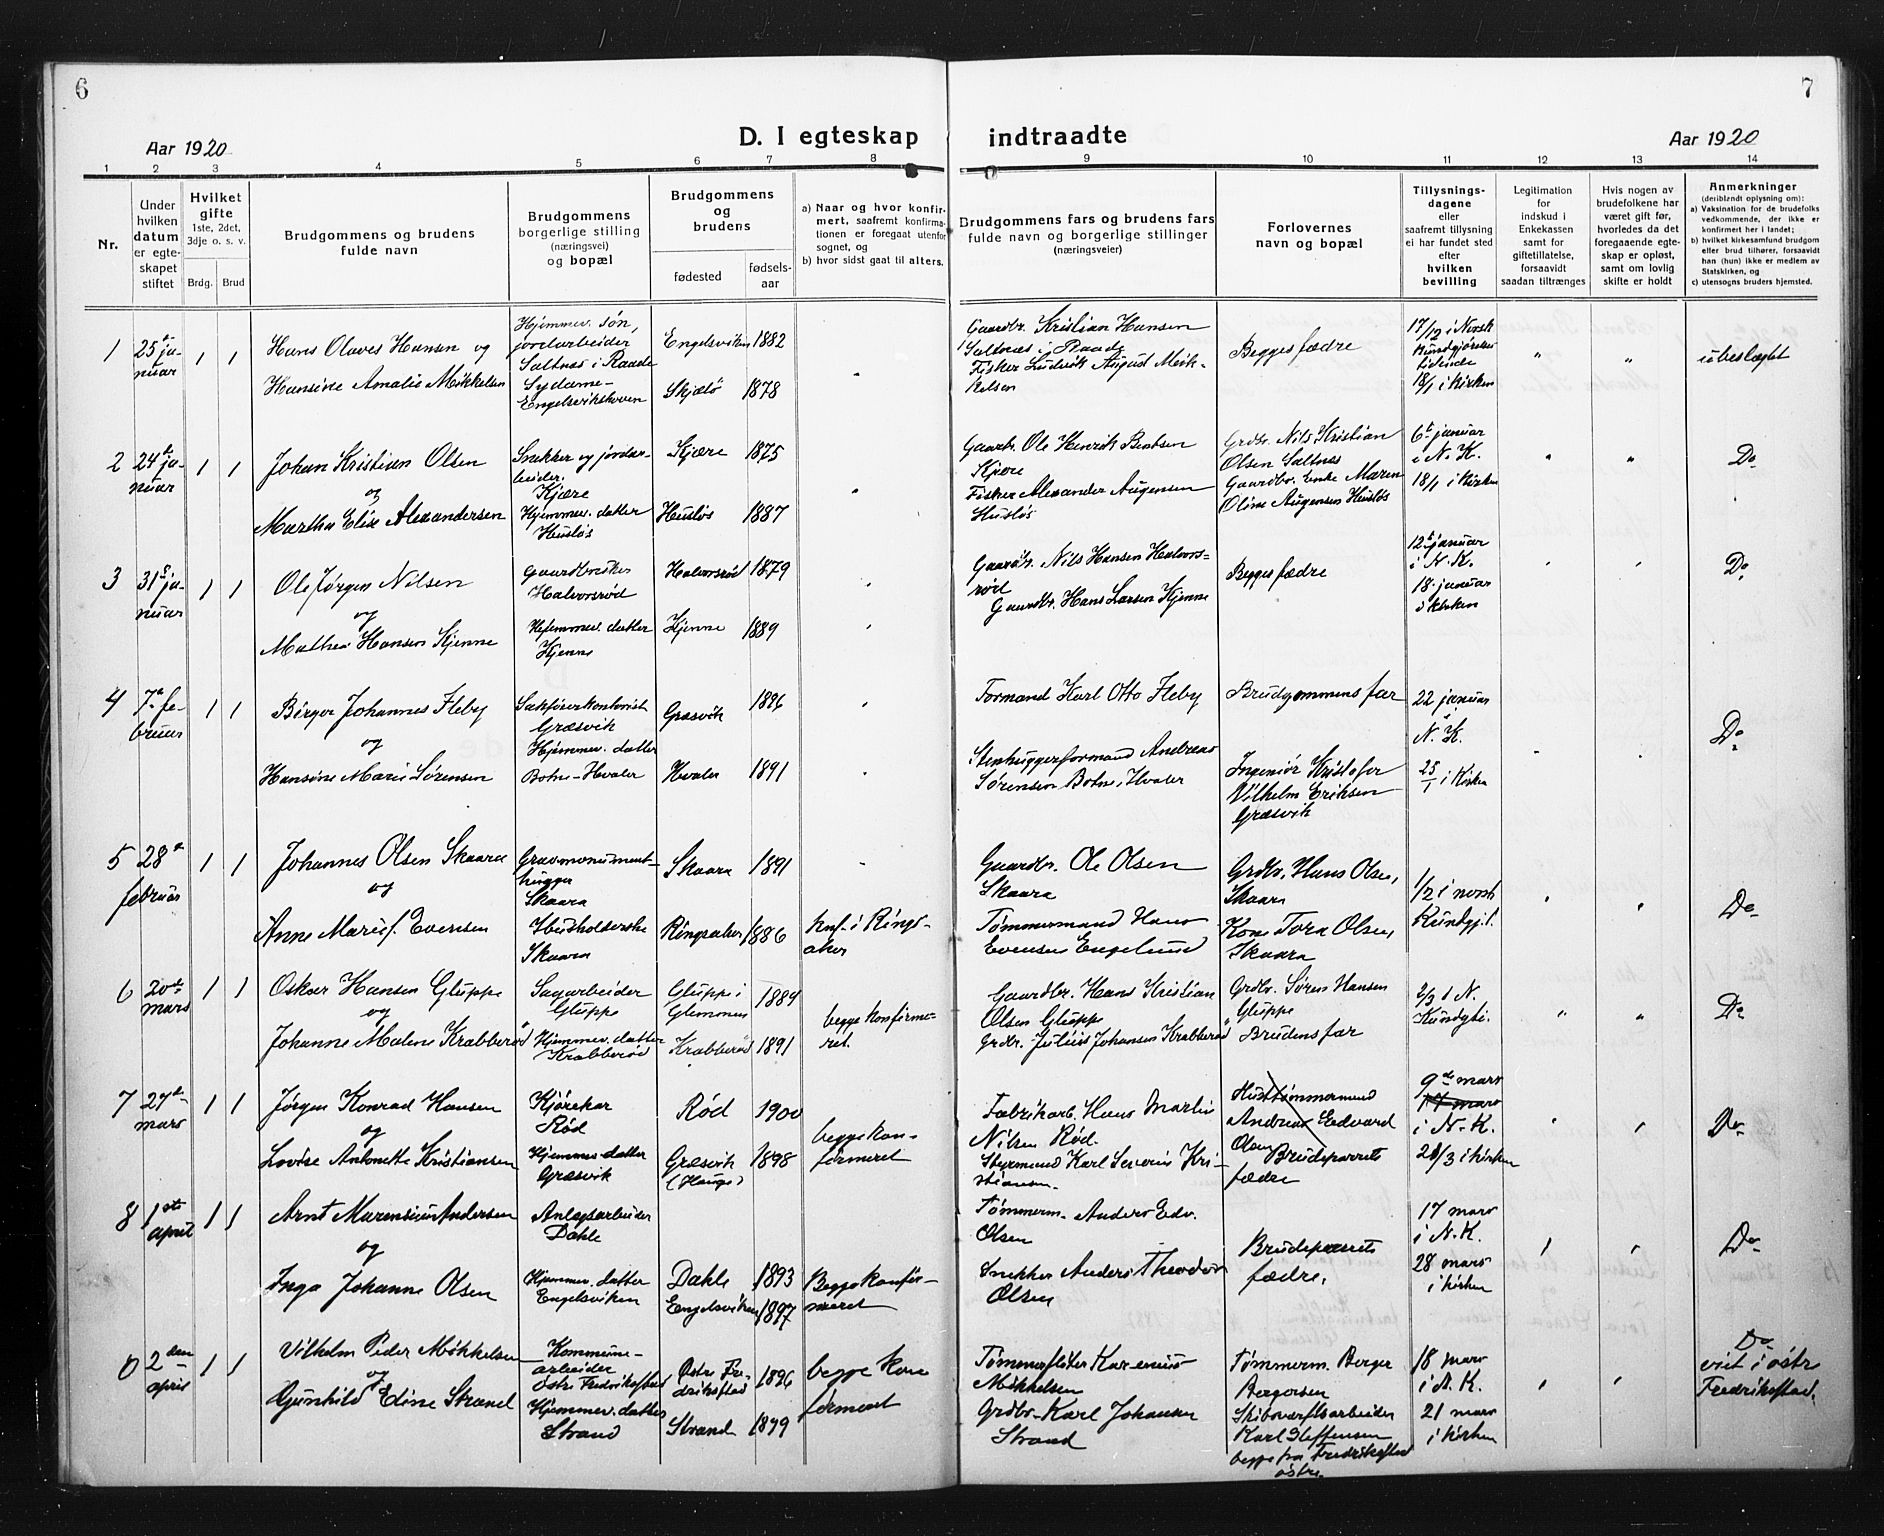 6
7
Aar 1920
D. I egteskap indtraadte
Aar 1920
1 2 3 4 5 6 7 8 9 10 11 12 13 14
Nr.
Under hvilken datum er egteskapet stiftet
Hvilket gifte
1ste, 2det, 3dje o. s. v.
Brdg. Brud
Brudgommens og brudens
fulde navn
Brudgommens
borgerlige stilling
(næringsvei)
og bopæl
Brudgommens
og
brudens
fødested
fødsels-
aar
a) Naar og hvor konfir-
mert, saafremt konfirma-
tionen er foregaat utenfor
sognet, og
b) hvor sidst gaat til alters.
Brudgommens fars og brudens fars
fulde navn og borgerlige stillinger
(næringsveier)
Forlovernes
navn og bopæl
Tillysnings-
dagene
eller
saafremt tillysning
ei har fundet sted
efter
hvilken
bevilling
Legitimation
for
indskud i
Enkekassen
samt for
giftetillatelse,
forsaavidt
saadan tiltrænges
Hvis nogen av
brudefolkene har
været gift før,
hvorledes da det
foregaaende egte-
skap er opløst,
samt om lovlig
skifte er holdt
Anmerkninger
(deriblandt oplysning om):
a) Vaksination for de brudefolks
vedkommende, der ikke er
konfirmert her i landet;
b) hvilket kirkesamfund brudgom
eller brud tilhører, forsaavidt
han (hun) ikke er medlem av
Statskirken, og
c) utensogns bruders hjemsted.
1 25 ja-
nuar 1 1
Hans Olaves Hansen og
Hansine Amalie Mikkelsen
Hjemmev. søn,
jordarbeider
Saltnes i Raade
Sydame
Engelsvikskoven
Engelsviken 1882
Skjælø 1878
Gaardbr. Kristian Hansen
Saltnæs i Raade
Fisker Ludvik August Mik-
kelsen
Begges fædre
17/12 i Norsk
Kundgjørelses
tidende
18/1 i kirken
" "
ubeslægtet
2 24 ja-
nuar 1 1
Johan Kristian Olsen
og
Martha Elise Alexandersen
Snekker og jordar-
beider.
Kjære
Hjemmev. datter
Husløs
Kjære 1875
Husløs 1887
Gaardbr. Ole Henrik Bentsen
Kjære
Fisker Alexander Augensen
Husløs
Grdbr. Nils Kristian
Olsen Saltnes
Gaardbr. enke Maren
Oline Augensen Husløs
6te januar
i N. K.
18/1 i kirken
" "
Do
3 31 ja-
nuar 1 1
Ole Jørgen Nilsen
og
Mathea Hansen Kjenne
Gaardbruker
Halvorsrød
Hjemmev. datter
Kjenne
Halvorsrød 1879
Kjenne 1889
Gaardbr. Nils Hansen Halvors-
rød
Gaardbr. Hans Larsen Kjenne
Begges fædre
12te januar
i N. K.
18. januar
i kirken
Do
4 7 fe-
bruar 1 1
Birger Johannes Fleby
og
Hansine Marie Sørensen
Sakførerkontorist
Græsvik
Hjemmev. datter
Botne-Hvaler
Græsvik 1896
Hvaler 1891
Formand Karl Otto Fleby
Stenhuggerformand Andreas
Sørensen Botne, Hvaler
Brudgommens far
Ingeniør Kristofer
Vilhelm Eriksen
Græsvik
22 januar
i
N. K.
25/1 i kirken
Do
5 28
februar 1 1
Johannes Olsen Skaara
og
Anne Marie J. Evensen
Gravmonument-
hugger
Skaara
Husholderske
Skaara
Skaara 1891
Ringsaker 1886
knf. i Rings-
aker
Gaardbr. Ole Olsen
Skaara
Tømmermand Hans
Evensen Engelund
Grdbr. Hans Olsen,
Skaara
Kone Tora Olsen,
Skaara
1/2 i norsk
Kundgj.t.
Do
6 20de
mars 1 1
Oskar Hansen Gluppe
og
Johanne Malene Krabberød
Sagarbeider
Gluppe
Hjemmev. datter
Krabberød
Gluppe i
Glemmen 1884
Krabberød 1891
begge konfirme-
ret.
Gaardbr. Hans Kristian
Olsen Gluppe
Grdbr. Julius Johansen Krabberød
Grdbr. Søren Hansen
Gluppe
Brudens far
2/3 i N.
Kundgti.
" "
Do
7 27de
mars 1 1
Jørgen Konrad Hansen
og
Lovise Antonette Kristiansen
Kjørekar
Rød
Hjemmev. datter
Græsvik
Rød 1900
Græsvik
(Hauge) 1898
begge kon-
firmeret
Fabrikarb. Hans Martin
Nilsen Rød.
Styrmand Karl Severin Kri-
stiansen
Hustømmermand
Andreas Edvard
Olsen Brudeparrets
fædre
9de mars
17 mars
i N. K.
21/3 i kirken
Do
8 1ste
april 1 1
Arnt Marensius Andersen
og
Inga Johanne Olsen
Anlægsarbeider
Dahle
Hjemmev. datter
Engelsviken
Dahle 1893
Engelsviken 1897
Begge konfir-
meret
Tømmerm. Anders Edv.
Olsen
Snekker Anders Theodor
Olsen
Brudeparrets
fædre.
17 mars
i N. K.
28 mars
i kirken
Do
2den
april 1 1
Vilhelm Peder Mikkelsen
og
Gunhild Edine Strand
Kommune-
arbeider
østre Fredrikstad
Hjemmev. datter
Strand
Østre Fre-
drikstad 1896
Strand 1899
begge kon
firmert
Tømmerfløter Karenius
Mikkelsen
Grdbr. Karl Johansen
Strand
Tømmerm. Berger
Bergersen
Skibsværftsarbeider
Karl Steffensen
begge fra Fredrikstad
østre
18 mars
i N. K.
21 mars
i kirken
Do
viet i østr
Fredrikstad.